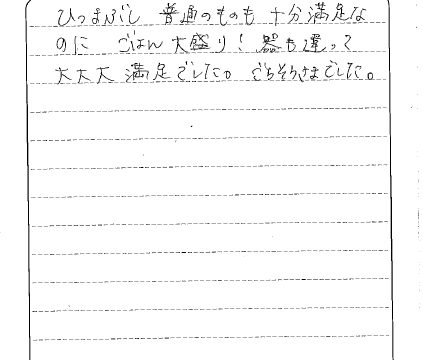 ひつまぶし 普通のものも 十分満足な
のに ごはん 大盛り! 器も違って
大大大 満足でした。 ごちそうさまでした。